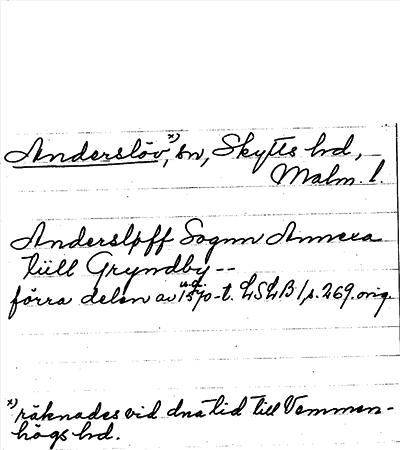 Anderslöv, *) sn, Skytts hd,
Malm. l.
Andersløff Sognn Annexa
till Gryndby--
förra delen av 1570-t. LSLB 1 s. 269. orig.
*) räknades vid dna tid till Vemmen-
högs hd.